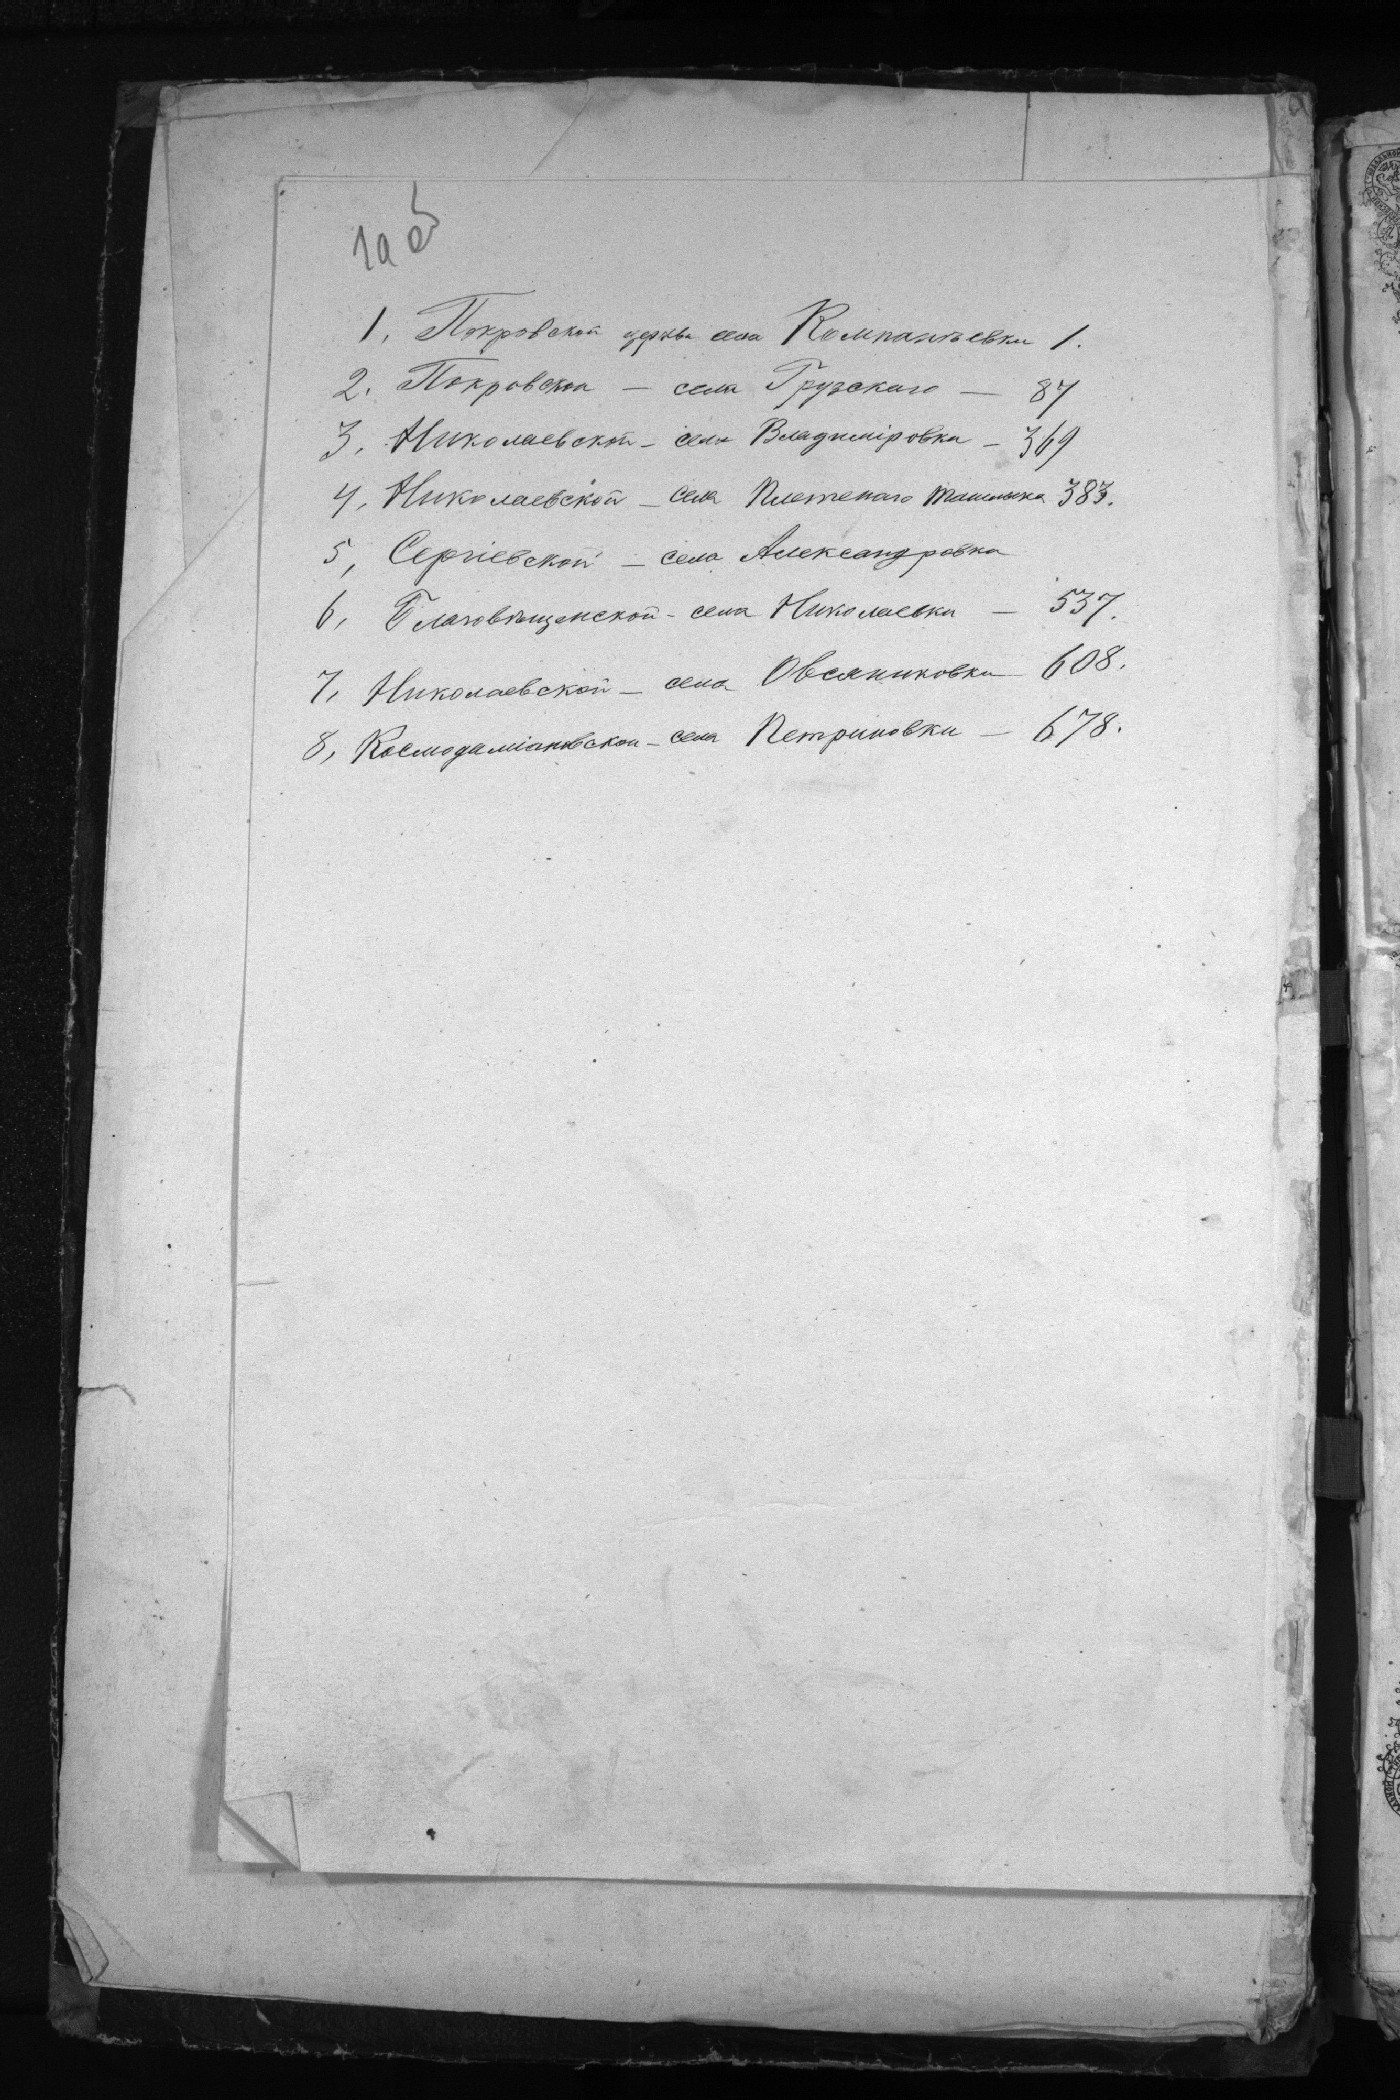 1а об
1, Покровской церкви села Компанѣевки 1.
2. Покровской — села Грузскаго — 87
3, Николаевской — села Владиміровка — 369
4, Николаевской — села Плетенаго Ташлыка 383.
5, Сергіевской — села Александровка
6, Благовѣщенской - села Николаевки — 537.
7, Николаевской — села Овсяниковки 608.
8, Космодаміановской — села Петриновки — 678.